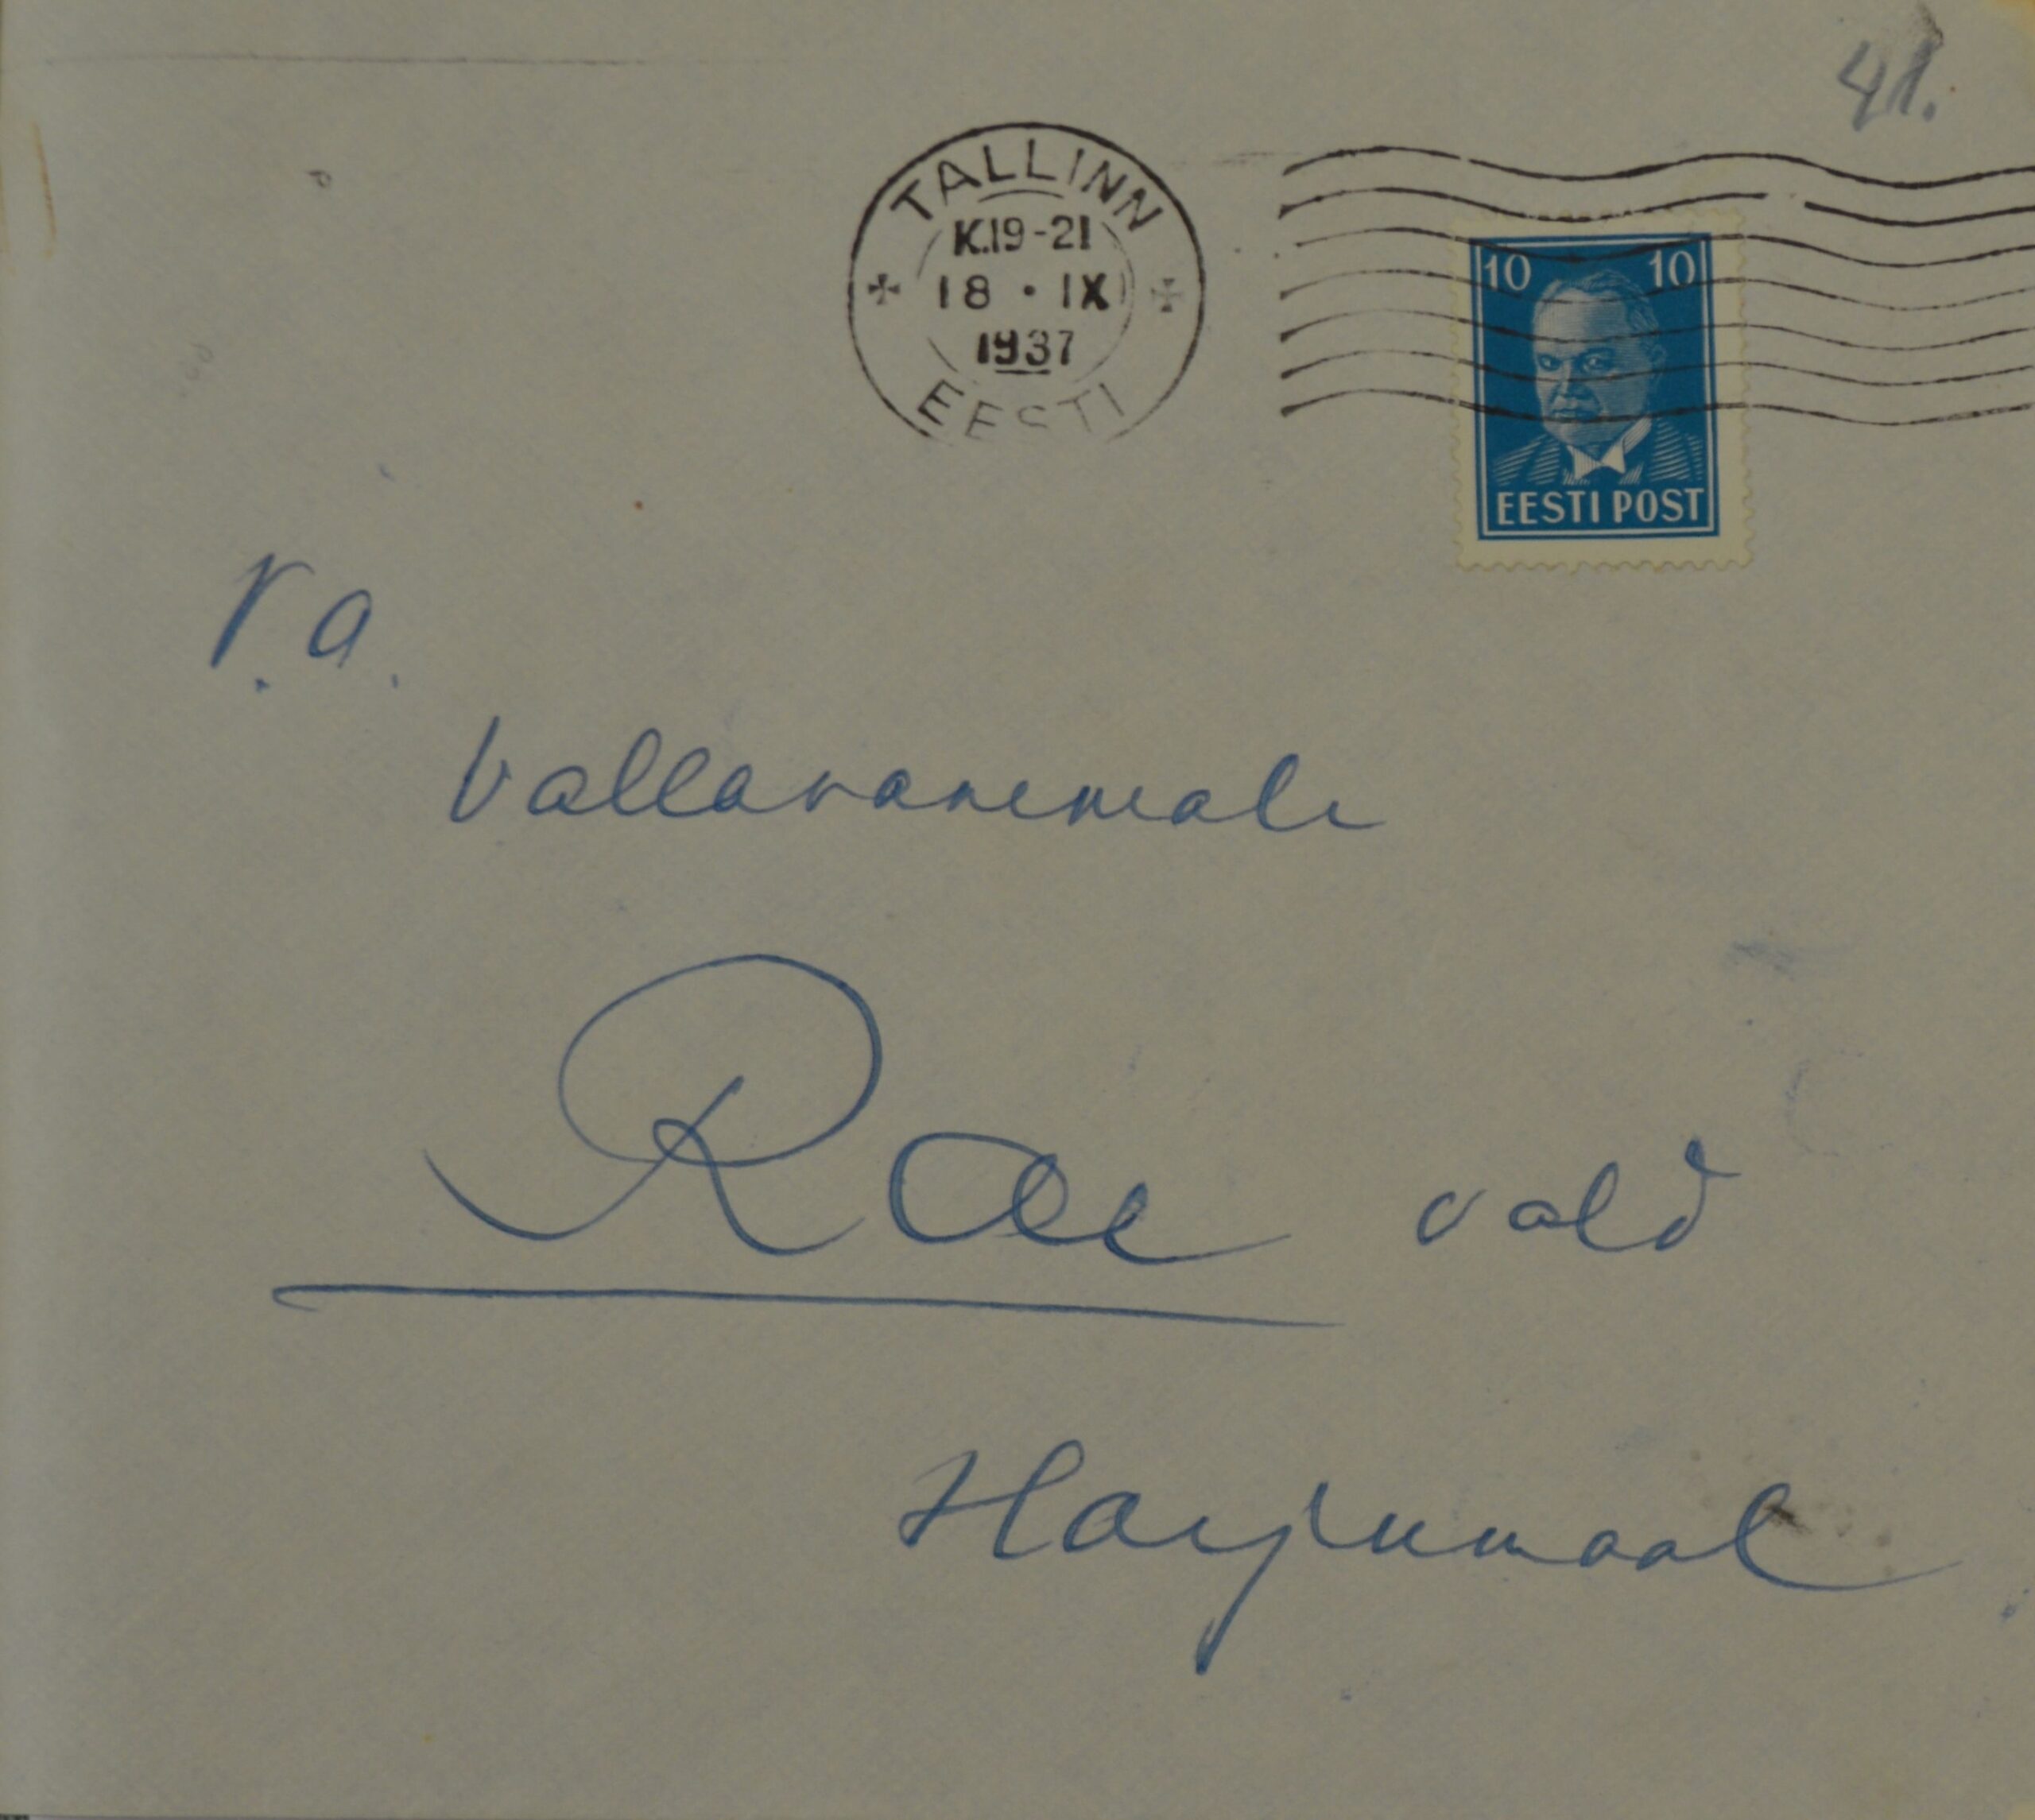 41.
TALLINN
K.19-21
18 · IX
1937
EESTI
10 10
EESTI POST
V. a.
Vallavanemale
Rae vald
Harjumaal